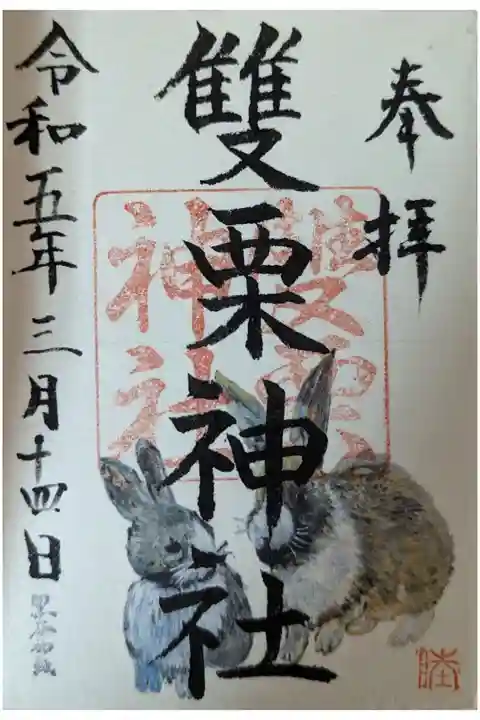 奉拝
雙栗神社
令和五年三月十四日